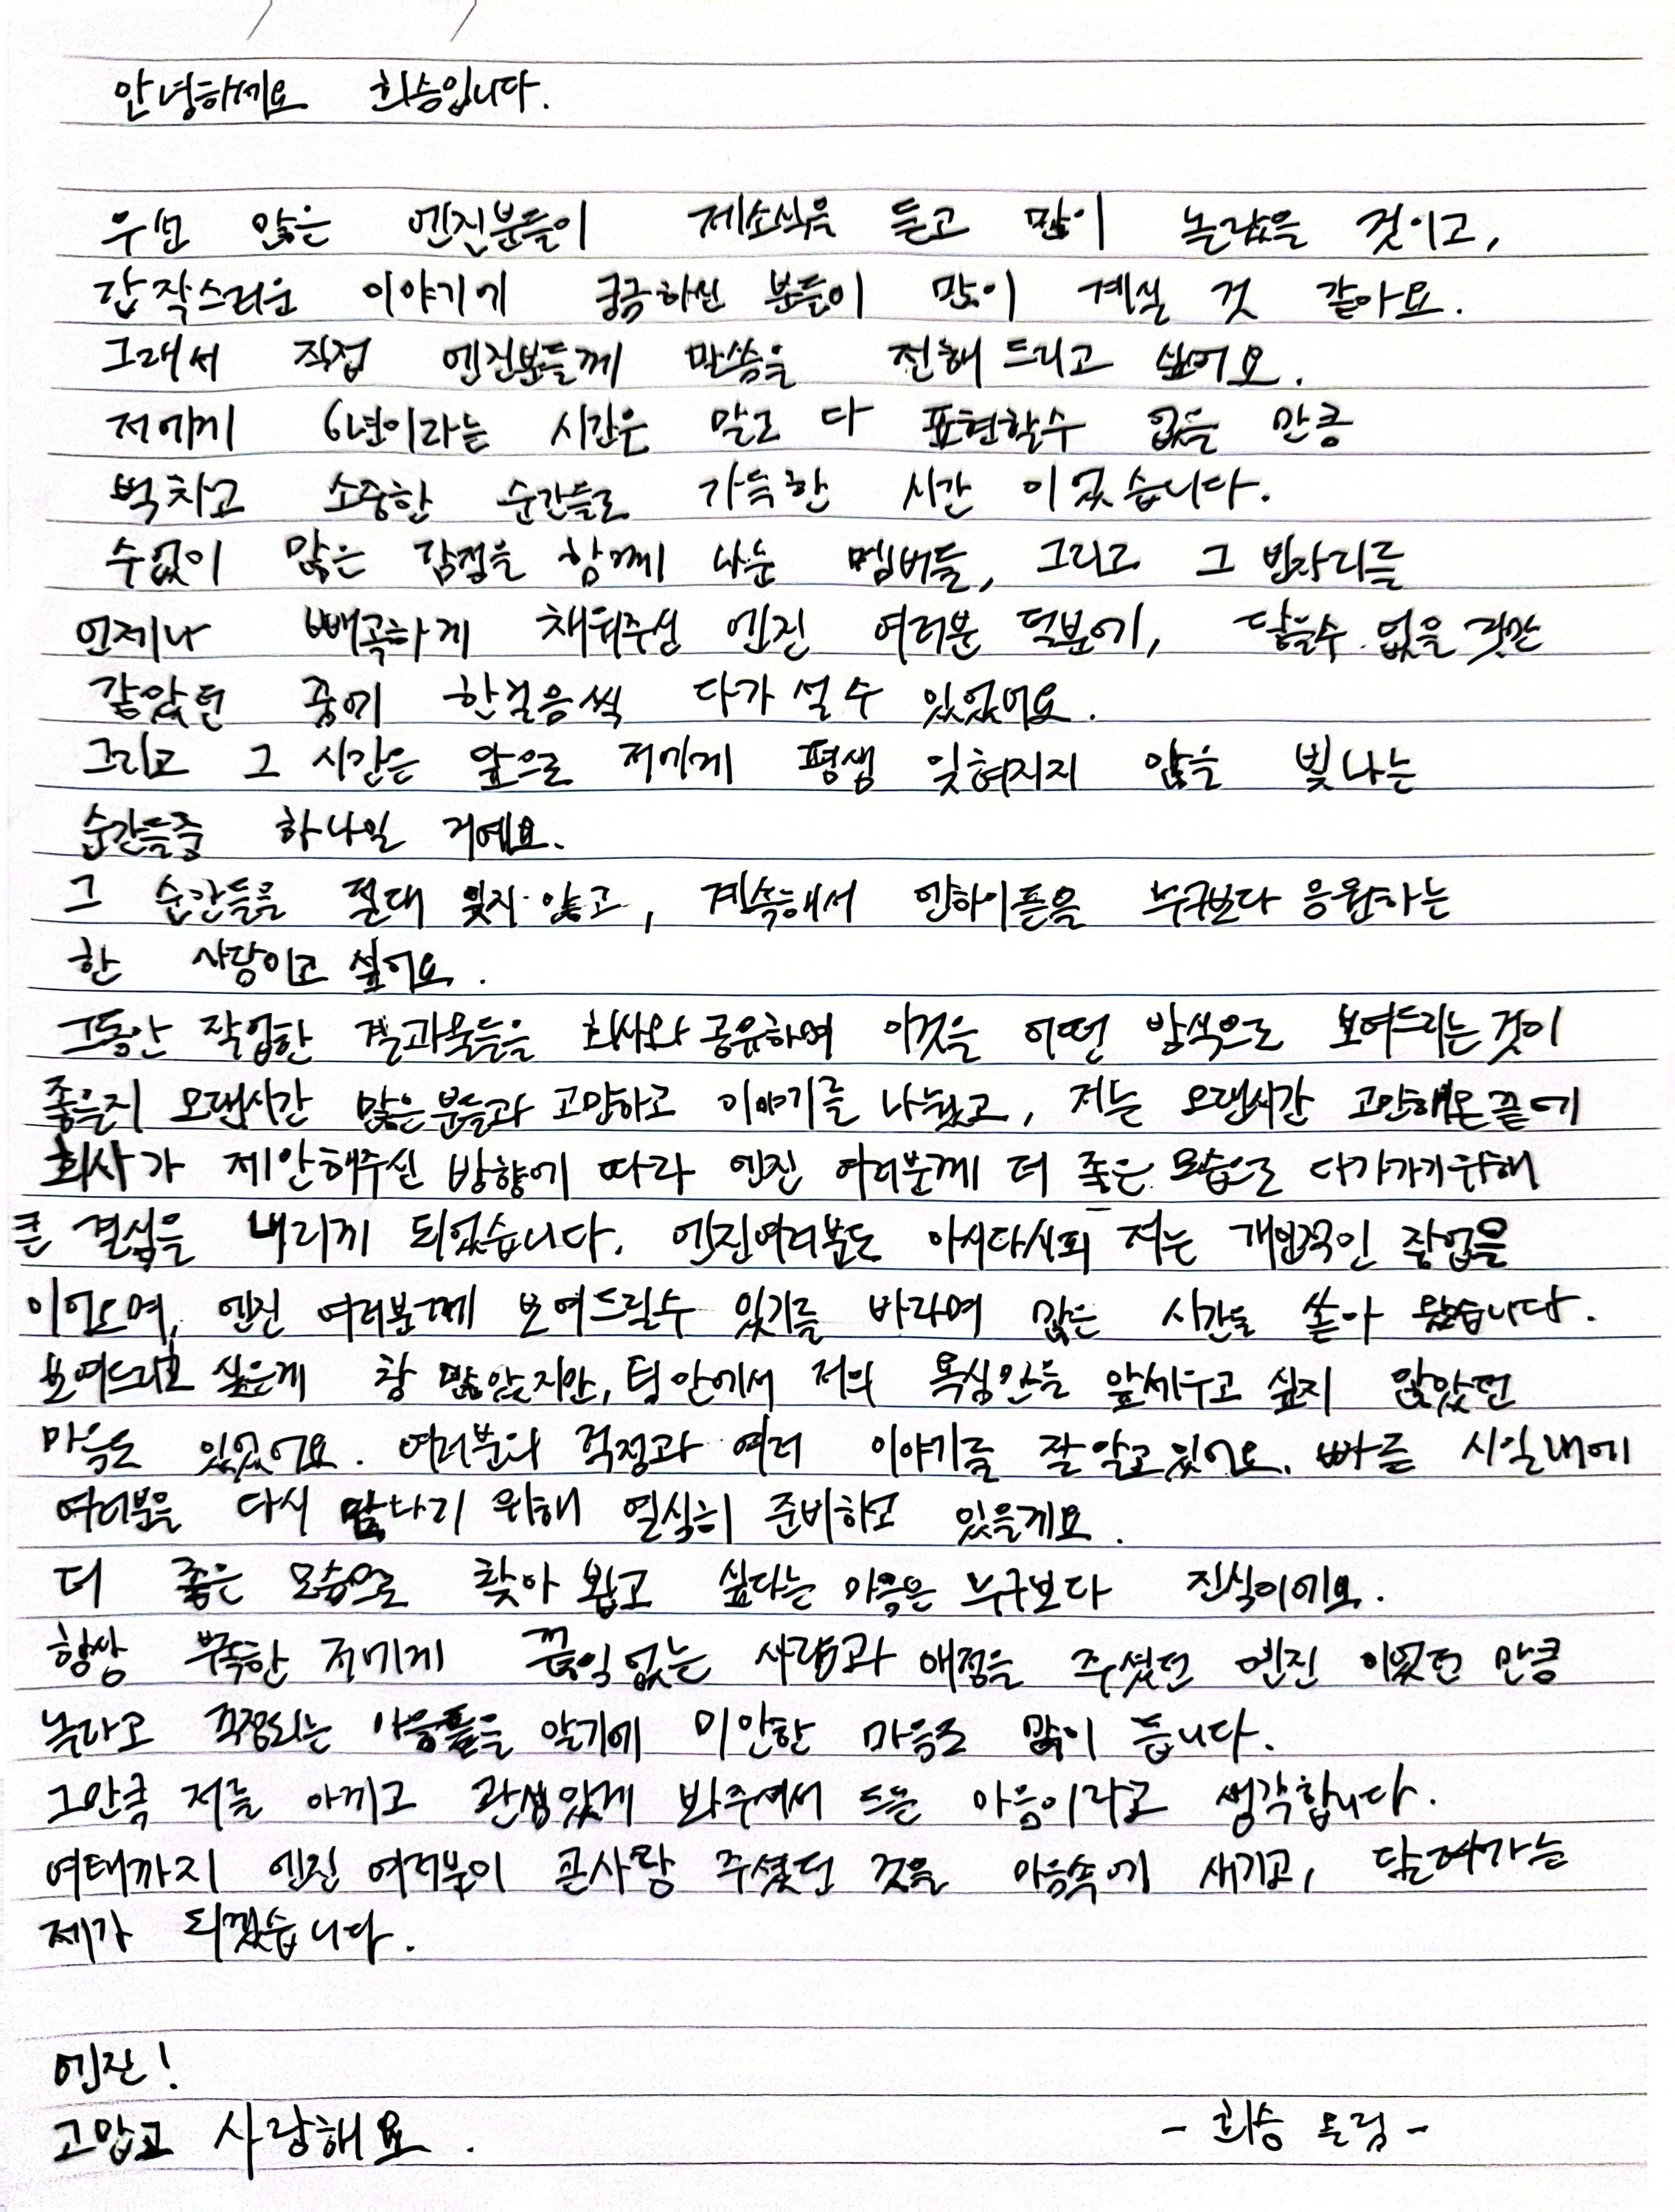 안녕하세요 희승입니다.
우선 많은 엔진분들이 제소식을 듣고 많이 놀랐을 것이고,
갑작스러운 이야기에 궁금하신 분들이 많이 계실 것 같아요.
그래서 직접 엔진분들께 말씀을 전해 드리고 싶어요.
저에게 6년이라는 시간은 말로 다 표현할수 없을 만큼
벅차고 소중한 순간들로 가득한 시간 이었습니다.
수없이 많은 감정을 함께 나눈 멤버들, 그리고 그 빈자리를
언제나 빼곡하게 채워주신 엔진 여러분 덕분에, 닿을수 없을 것만
같았던 꿈에 한걸음씩 다가 설 수 있었어요.
그리고 그 시간은 앞으로 저에게 평생 잊혀지지 않을 빛나는
순간들중 하나일 거예요.
그 순간들을 절대 잊지 않고, 계속해서 엔하이픈을 누구보다 응원하는
한 사람이고 싶어요.
그동안 작업한 결과물들을 회사와 공유하며 이것을 어떤 방식으로 보여드리는 것이
좋을지 오랜시간 많은분들과 고민하고 이야기를 나눴고, 저는 오랜시간 고민해온 끝에
회사가 제안해주신 방향에 따라 엔진 여러분께 더 좋은 모습으로 다가가기위해
큰 결심을 내리게 되었습니다. 엔진여러분도 아시다시피 저는 개인적인 작업을
이어오며, 엔진 여러분께 보여드릴수 있기를 바라며 많은 시간을 쏟아 왔습니다.
보여드리고 싶은게 참 많았지만, 팀 안에서 저의 욕심만을 앞세우고 싶지 않았던
마음도 있었어요. 여러분의 걱정과 여러 이야기를 잘 알고있어요. 빠른 시일내에
여러분을 다시 만나기 위해 열심히 준비하고 있을게요.
더 좋은 모습으로 찾아 뵙고 싶다는 마음은 누구보다 진심이에요.
항상 부족한 저에게 끊임없는 사랑과 애정을 주셨던 엔진 이었던 만큼
놀라고 걱정되는 마음들을 알기에 미안한 마음도 많이 듭니다.
그만큼 저를 아끼고 관심있게 봐주셔서 드는 마음이라고 생각합니다.
여태까지 엔진 여러분이 큰사랑 주셨던 것을 마음속에 새기고, 달려가는
제가 되겠습니다.
엔진!
고맙고 사랑해요.
- 희승 올림 -